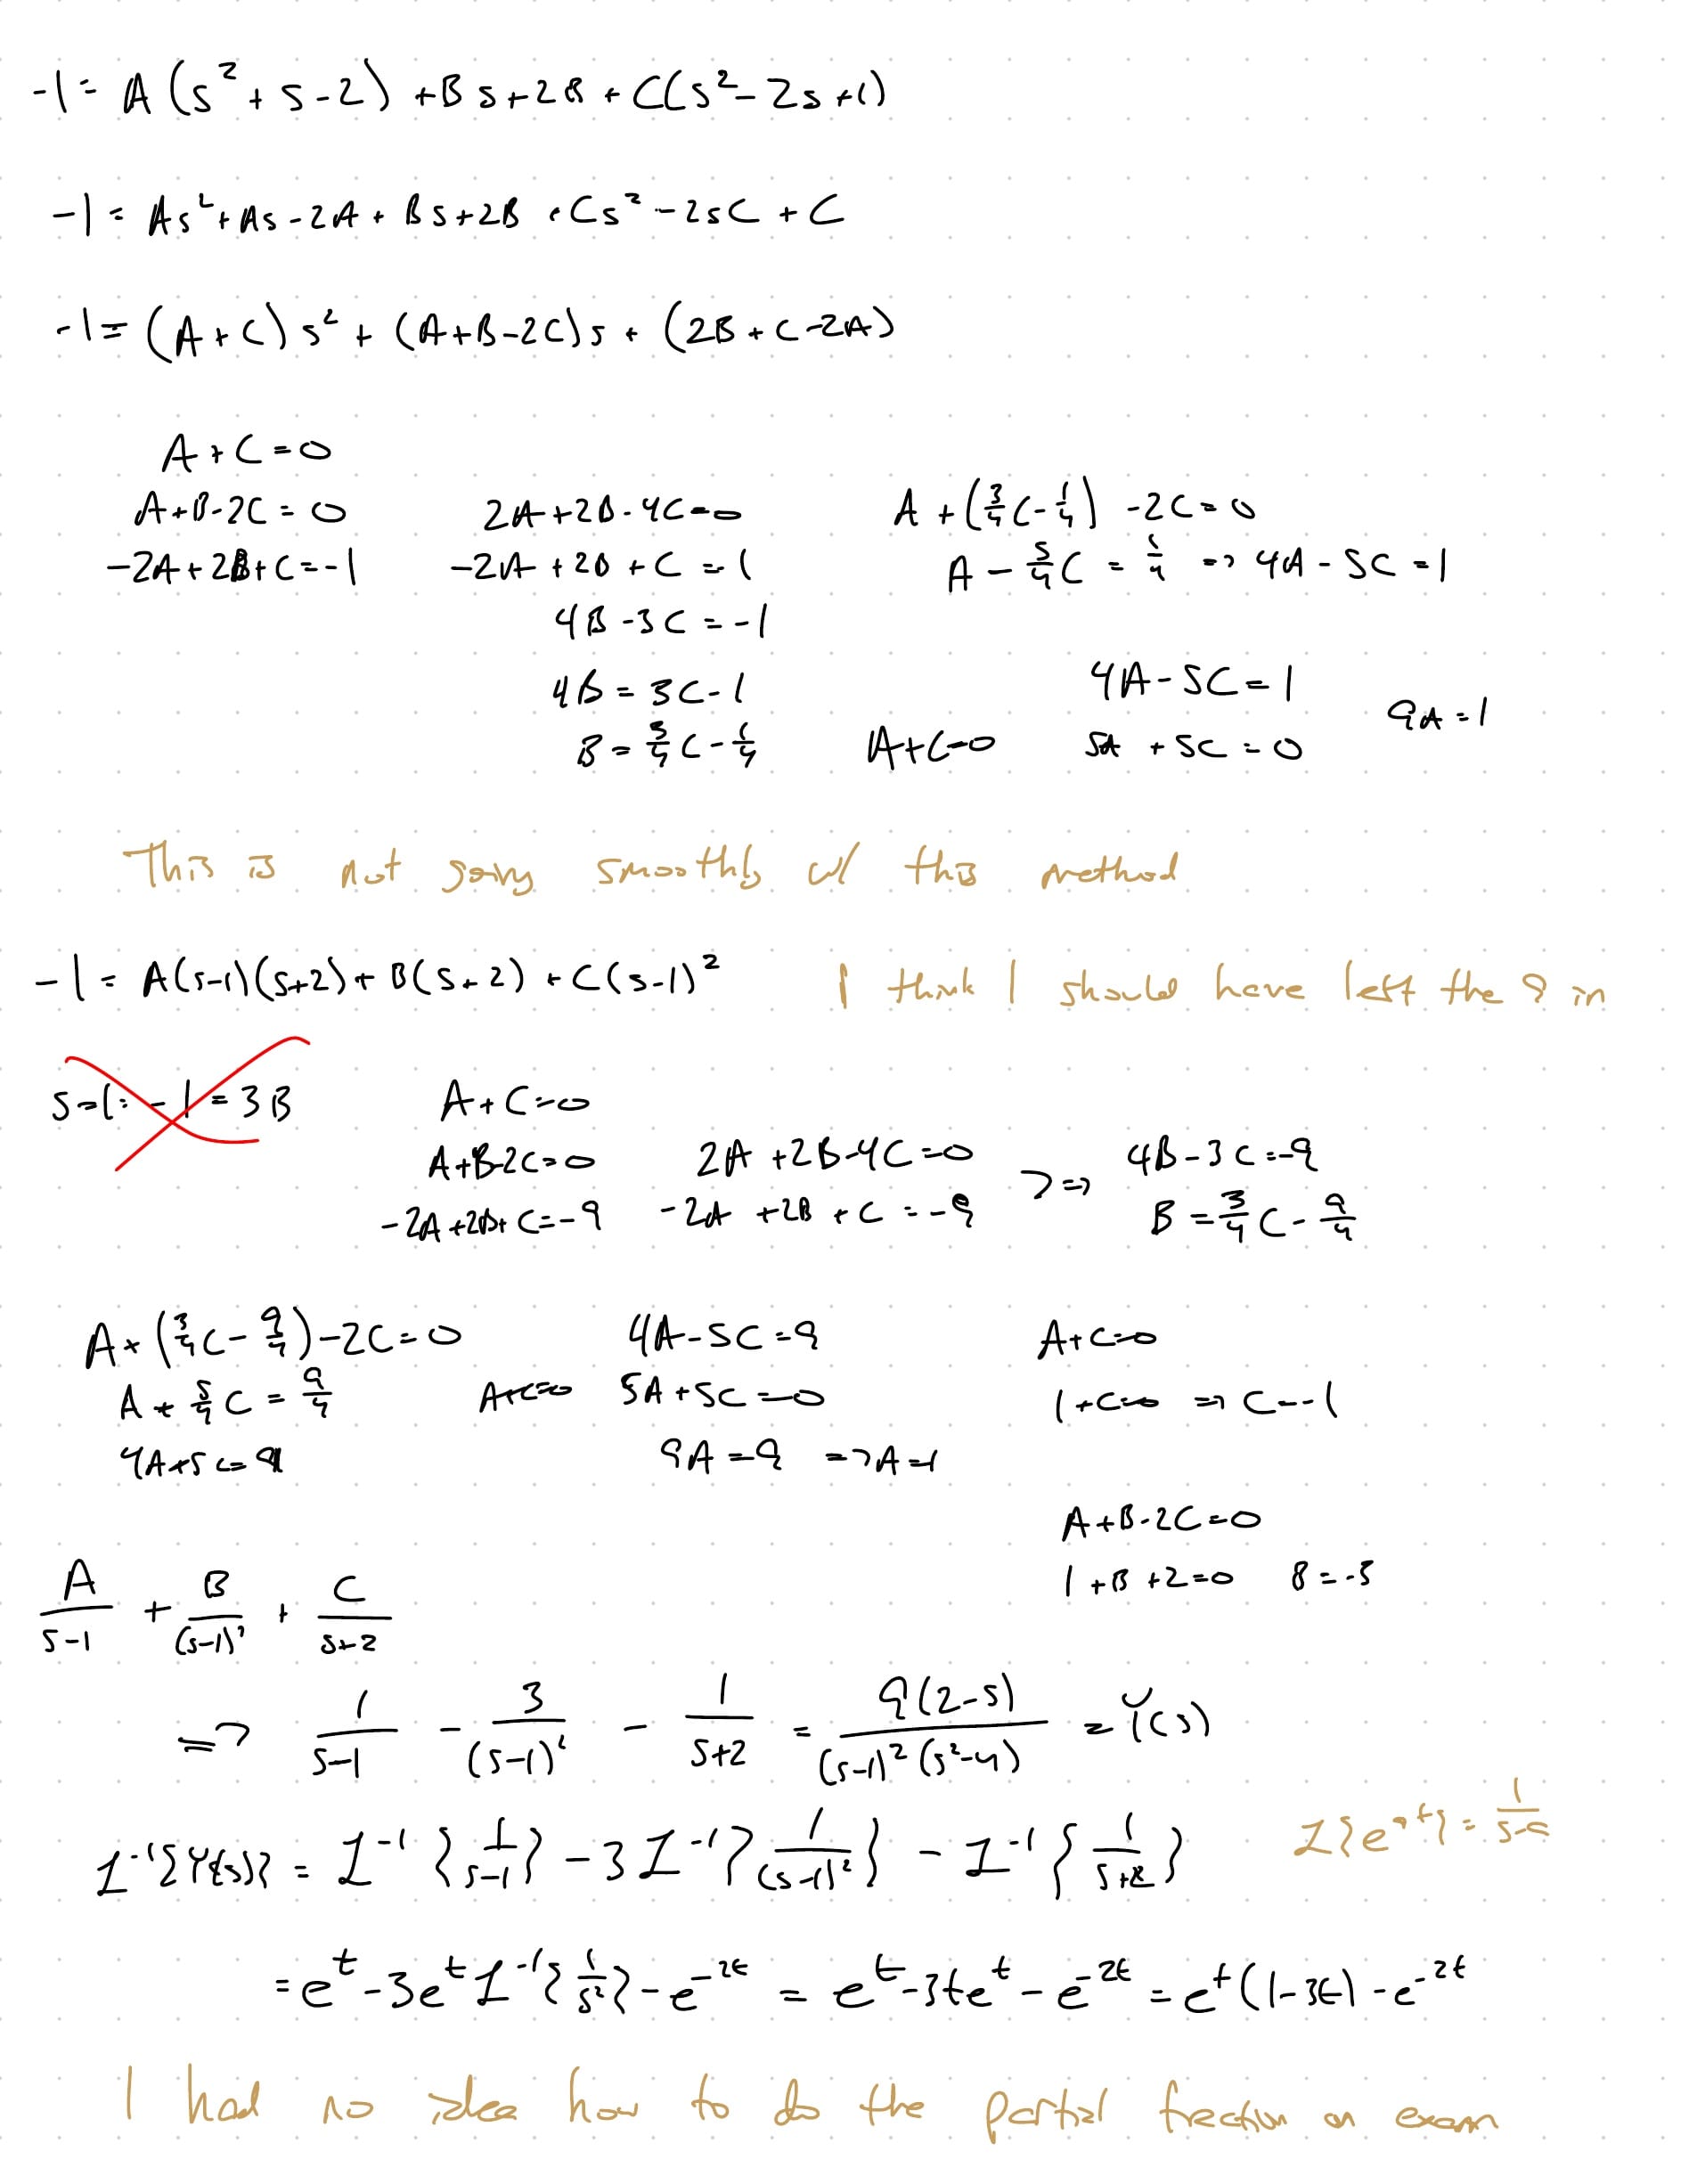 -1 = A(s²+s-2) + Bs+2B + C(s²-2s+1)
-1 = As²+As-2A + Bs+2B + Cs²-2sC + C
-1 = (A+C)s² + (A+B-2C)s + (2B+C-2A)
A+C=0
A+B-2C=0
-2A+2B+C=-1
2A+2B-4C=0
-2A+2B+C=1
4B-3C=-1
4B=3C-1
B=3/4C-1/4
A+(3/4C-1/4)-2C=0
A-5/4C=1/4 => 4A-5C=1
A+C=0
4A-5C=1
5A+5C=0
9A=1
This is not going smoothly w/ this method
-1 = A(s-1)(s+2) + B(s+2) + C(s-1)²
I think I should have left the 9 in
s=1: -1=3B
A+C=0
A+B-2C=0
-2A+2B+C=-9
2A+2B-4C=0
-2A+2B+C=-9
=>
4B-3C=-9
B=3/4C-9/4
A+(3/4C-9/4)-2C=0
A+5/4C=9/4
4A+5C=9
A+C=0
4A-5C=9
5A+5C=0
9A=9 => A=1
A+C=0
1+C=0 => C=-1
A+B-2C=0
1+B+2=0 B=-3
A/(s-1) + B/(s-1)² + C/(s+2)
=> 1/(s-1) - 3/(s-1)² - 1/(s+2) = 9(2-s)/((s-1)²(s²-4)) = Y(s)
ℒ⁻¹{Y(s)} = ℒ⁻¹{1/(s-1)} - 3ℒ⁻¹{1/(s-1)²} - ℒ⁻¹{1/(s+2)}
ℒ{e^(at)} = 1/(s-a)
= e^t - 3e^t ℒ⁻¹{1/s²} - e^(-2t) = e^t - 3te^t - e^(-2t) = e^t(1-3t) - e^(-2t)
I had no idea how to do the partial fraction on exam